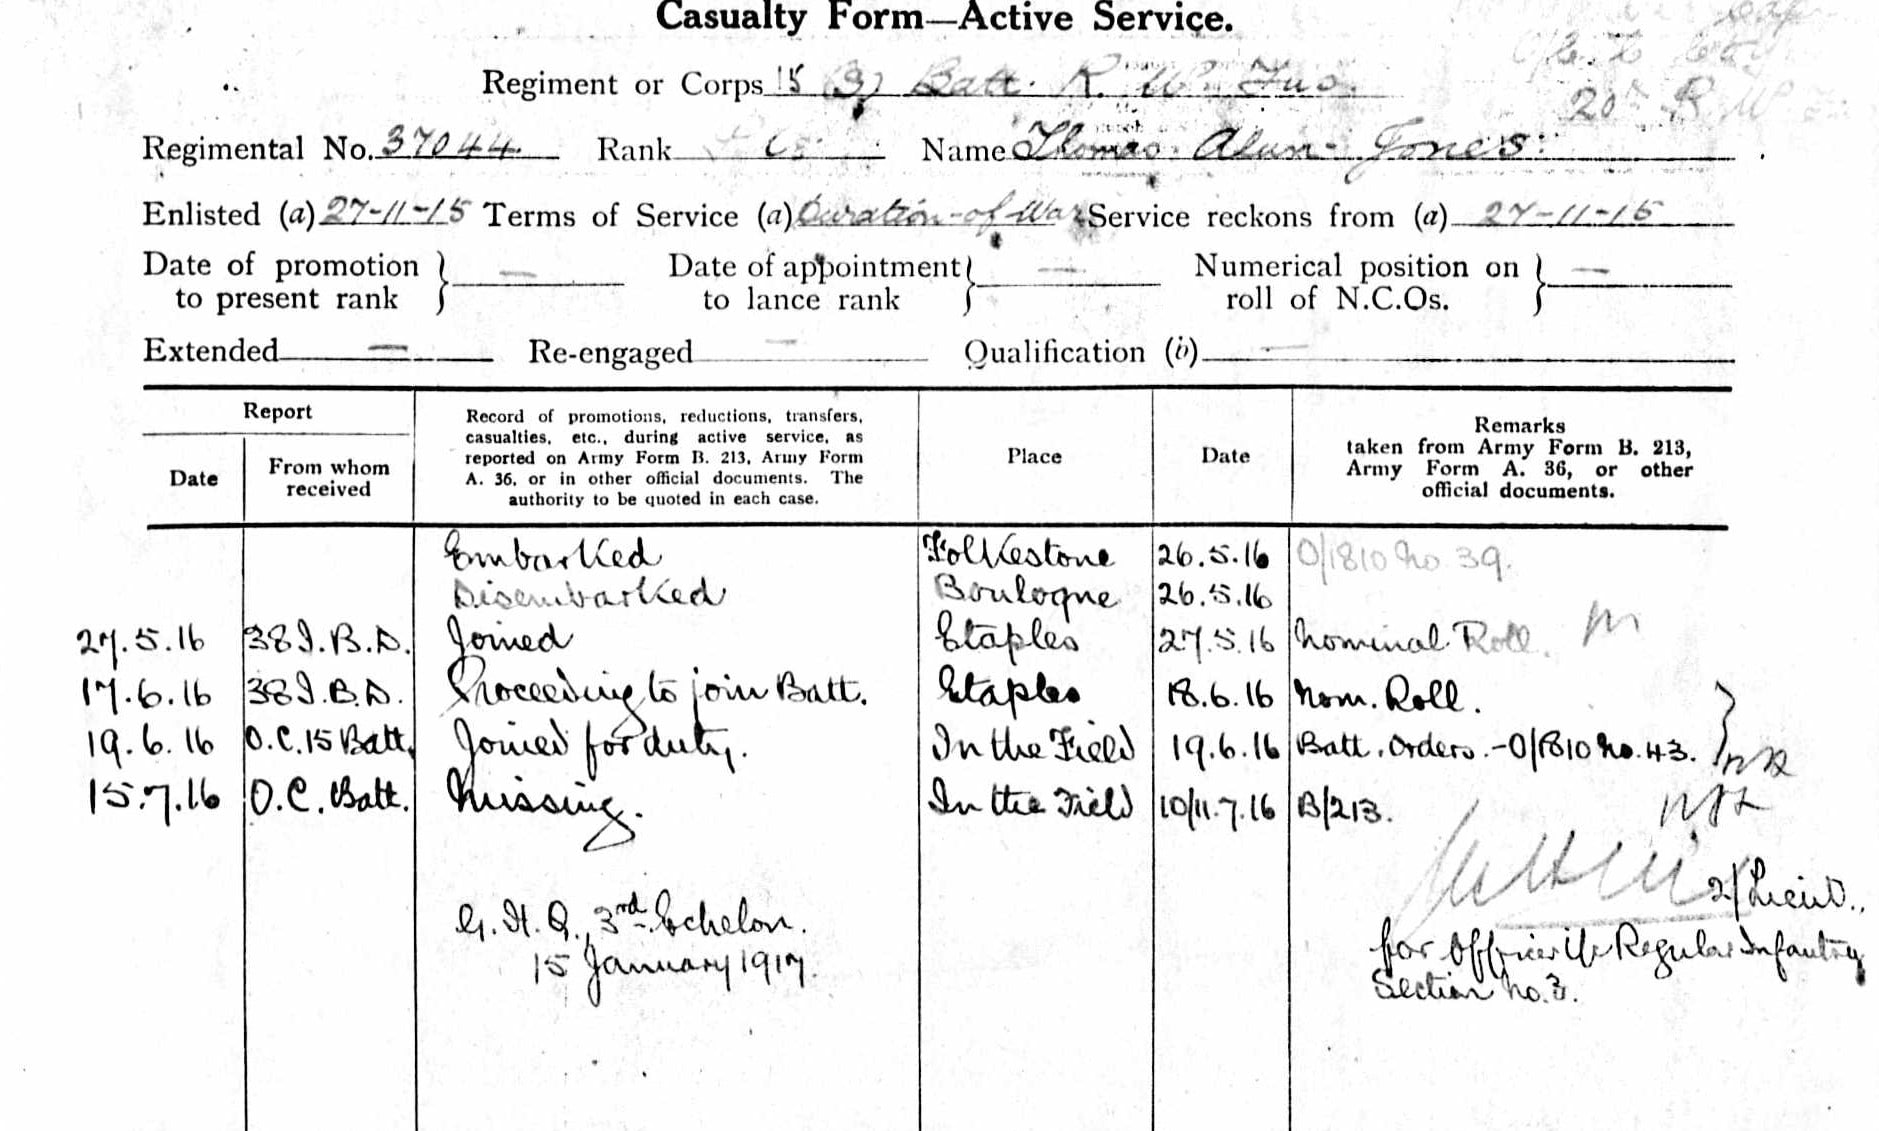 Casualty Form—Active Service.
Regiment or Corps 15 (S) Batt. R. W. Fus.
20th R W
Regimental No. 37044 Rank Name Thomas Alun Jones
Enlisted (a) 27-11-15 Terms of Service (a) Duration of War Service reckons from (a) 27-11-15
Date of promotion to present rank } — Date of appointment to lance rank } — Numerical position on roll of N.C.Os. } —
Extended — Re-engaged — Qualification (b) —
Report
Date
From whom received
Record of promotions, reductions, transfers, casualties, etc., during active service, as reported on Army Form B. 213, Army Form A. 36, or in other official documents. The authority to be quoted in each case.
Place
Date
Remarks taken from Army Form B. 213, Army Form A. 36, or other official documents.
Embarked Folkestone 26.5.16 O/1810 No. 39.
Disembarked Boulogne 26.5.16
27.5.16 38 I.B.D. Joined Etaples 27.5.16 Nominal Roll.
17.6.16 38 I.B.D. Proceeding to join Batt. Etaples 18.6.16 Nom. Roll.
19.6.16 O.C. 15 Batt. Joined for duty. In the Field 19.6.16 Batt. Orders. - O/1810 No. 43.
15.7.16 O.C. Batt. Missing. In the Field 10/11.7.16 B/213.
2/Lieut.,
G.H.Q., 3rd Echelon.
15 January 1917.
for Officer i/c Regular Infantry
Section No. 3.